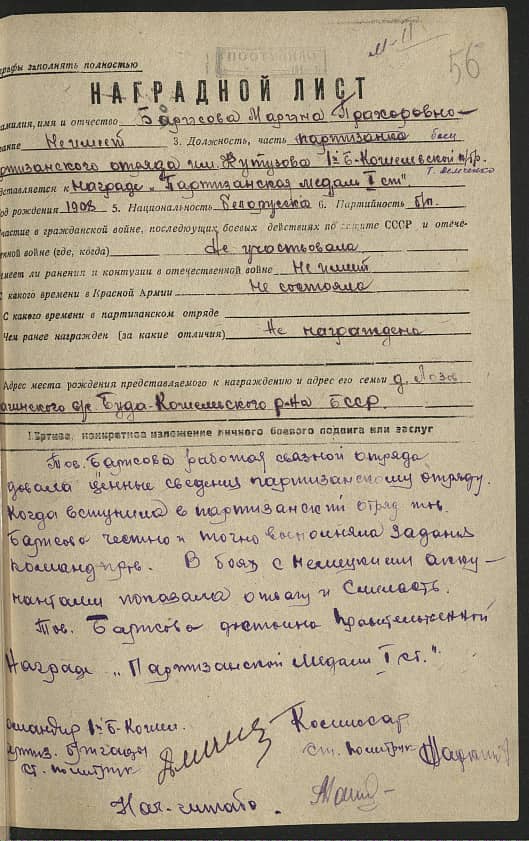 м-II
56
ПОСТУПИЛО
графы заполнять полностью
НАГРАДНОЙ ЛИСТ
амилия, имя и отчество Барисова Марына Прахоровно-
вание Не имеет 3. Должность, часть партизанка боец
артизанского отряда им. Кутузова 1й Б-Кошелевской п/бр.
дставляется к награде „Партизанская медаль I ст".
од рождения 1908 5. Национальность Белорусска 6. Партийность б/п.
частие в гражданской войне, последующих боевых действиях по защите СССР и отече-
енной войне (где, когда) Не участвовала
меет ли ранения и контузии в отечественной войне Не имеет
С какого времени в Красной Армии Не состояла
С какого времени в партизанском отряде
Чем ранее награжден (за какие отличия) Не награждена
Адрес места рождения представляемого к награждению и адрес его семьи д. Лозов
Буда-Кошелевского р-на БССР.
I. Краткое, конкретное изложение личного боевого подвига или заслуг
Тов. Барисова работая связной отряда
довала ценные сведения партизанскому отряду.
Когда вступила в партизанский отряд тов.
Барисова честно и точно выполняла задания
командиров. В боях с немецкими окку-
пантами показала отвагу и смелость.
Тов. Барисова достойна правительственной
награде „Партизанской Медали I ст."
омандир 1й Б-Кошел. Комиссар
артиз. бригады ст. политрук
ст. политрук
Нач. штаба.